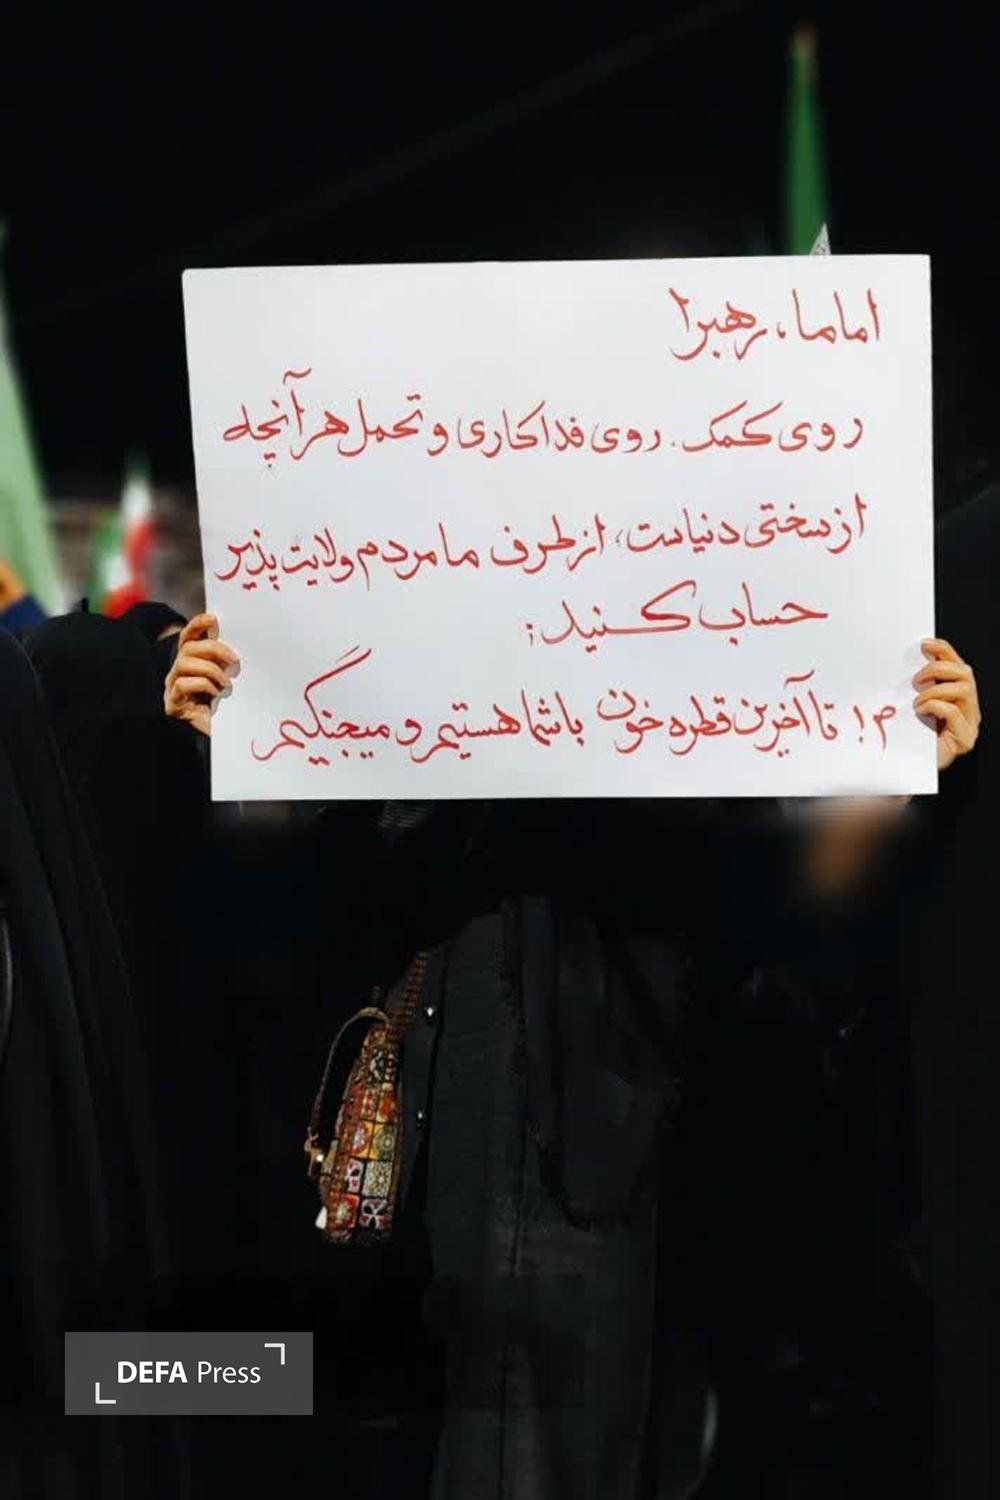 اماما، رهبرا
روی کمک. روی فداکاری و تحمل هر آنچه
از سختی دنیاست، از طرف ما مردم ولایت پذیر
حساب کنید؛
م! تا آخرین قطره خون باشما هستیم و میجنگیم
DEFA Press